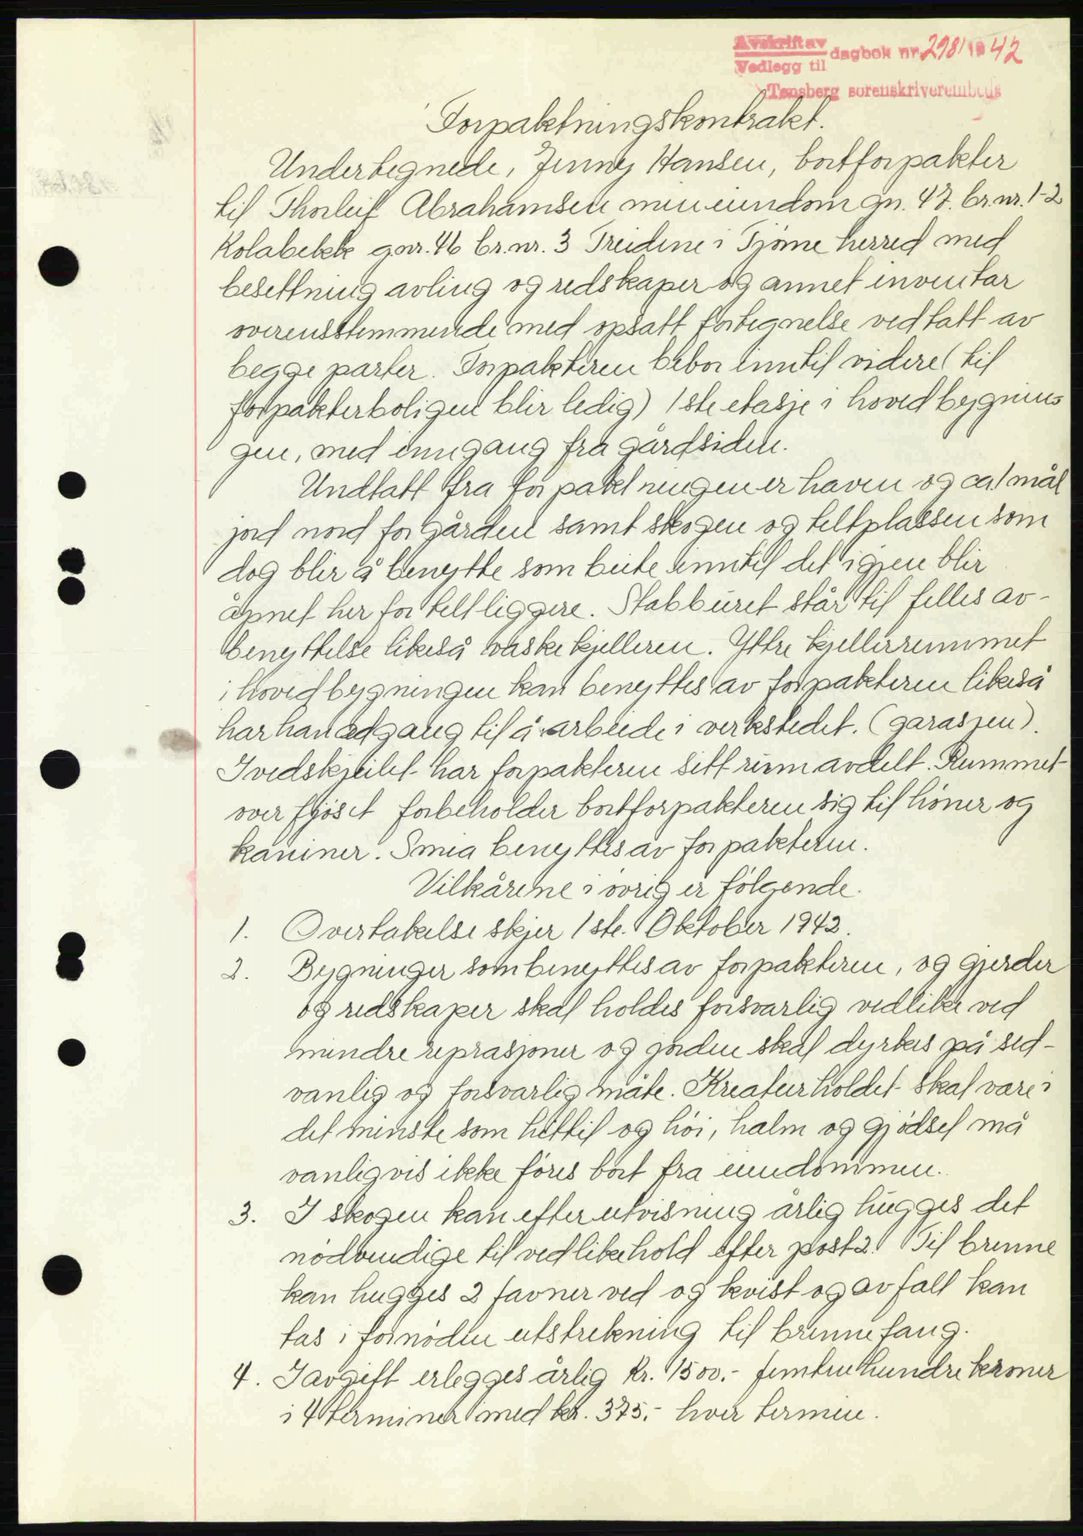 Avskrift av
Vedlegg til dagbok nr. 2981 19 42
Tønsberg sorenskriverembeds
Forpaktningskontrakt.
Undertegnede, Jenny Hansen, bortforpakter
til Thorleif Abrahamsen min eiendom gn. 47. br.nr. 1-2
Kolabekk gnr. 46 br.nr. 3 Treidene i Tjöme herred med
besettning avling og redskaper og annet inventar
overensstemmende med opsatt fortegnelse vedtatt av
begge parter. Forpakteren bebor inntil videre (til
forpakterboligen blir ledig) 1ste etasje i hovedbygnin-
gen, med inngang fra gårdsiden.
Undtatt fra forpaktningen er haven og ca 1 mål
jord nord for gården samt skogen og teltplassen som
dog blir å benytte som beite inntil det igjen blir
åpnet her for teltliggere. Stabburet står til felles av-
benyttelse likeså vaskekjelleren. Yttre kjellerrummet
i hovedbygningen kan benyttes av forpakteren likeså
har han adgang til å arbeide i verkstedet. (garasjen).
I vedskjulet har forpakteren sitt rum avdelt. Rummet
over fjöset forbeholder bortforpakteren sig til höner og
kaniner. Smia benyttes av forpakteren.
Vilkårene i övrig er fölgende.
1. Overtakelse skjer 1ste. Oktober 1942.
2. Bygninger som benyttes av forpakteren, og gjerder
og redskaper skal holdes forsvarlig vedlike ved
mindre reprasjoner og jorden skal dyrkes på sed-
vanlig og forsvarlig måte. Kreaturholdet skal være i
det minste som hittil og höi, halm og gjödsel må
vanligvis ikke föres bort fra eiendommen.
3. I skogen kan efter utvisning årlig hugges det
nödvendige til vedlikehold efter post 2. Til brenne
kan hugges 2 favner ved og kvist og avfall kan
tas i fornöden utstrekning til brennefang.
4. I avgift erlegges årlig kr. 1500.- femtenhundre kroner
i 4 terminer med kr. 375.- hver termin.